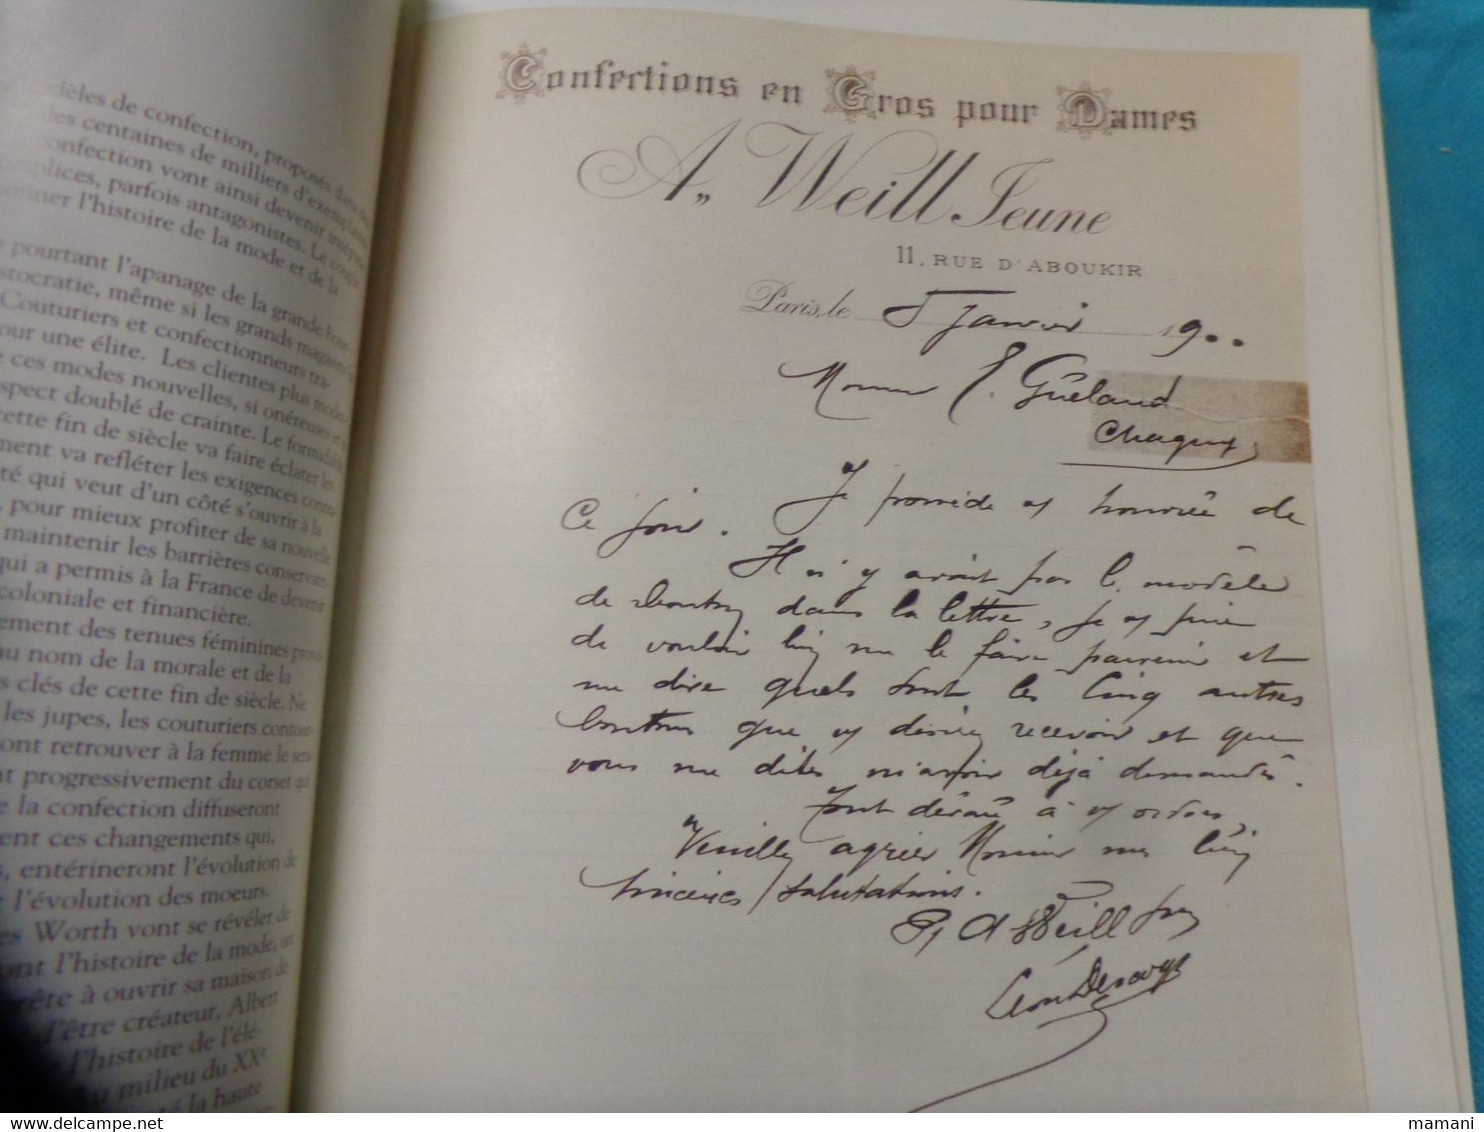 èles de confection, proposés dans
les centaines de milliers d'exemplaires
confection vont ainsi devenir
plices, parfois antagonistes. Le couple
l'histoire de la mode et de la
pourtant l'apanage de la grande
stocratie, même si les grands magasins
Couturiers et confectionneurs tra-
our une élite. Les clientes plus modes-
ces modes nouvelles, si onéreuses
spect doublé de crainte. Le formidable
cette fin de siècle va faire éclater les
ment va refléter les exigences contra-
té qui veut d'un côté s'ouvrir à la
, pour mieux profiter de sa nouvelle
maintenir les barrières conserva-
qui a permis à la France de devenir
coloniale et financière.
ement des tenues féminines
au nom de la morale et de la
s clés de cette fin de siècle. Ne
les jupes, les couturiers contour-
ont retrouver à la femme le sens
t progressivement du corset qui
e la confection diffuseront
ent ces changements qui,
s, entérineront l'évolution de
t l'évolution des moeurs.
es Worth vont se révéler de
ant l'histoire de la mode, un
rête à ouvrir sa maison de
d'être créateur, Albert
l'histoire de l'élé-
milieu du XXe
té la haute
Confections en Gros pour Dames
A. Weill Jeune
11, RUE D'ABOUKIR
Paris, le 5 Janvier 1900
Monsieur E. Guéland
Chagny
Je possède v/ honorée de
ce jour.
Il n'y avait pas le modèle
de dans la lettre, je v/ prie
de vouloir bien me le faire parvenir et
me dire quels sont les cinq autres
que v/ désirez recevoir et que
vous me dites m'avoir déjà demandés.
Tout dévoué à v/ ordres,
Veuillez agréer Monsieur mes bien
sincères salutations.
A Weill Jne
Léon
www.delcampe.net
mamani